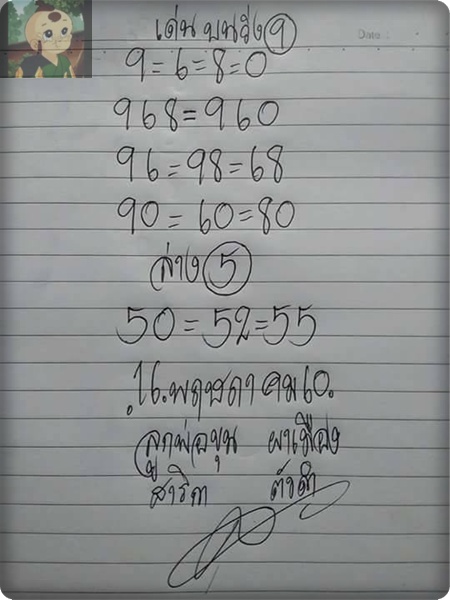 เด่น บนวิ่ง 9
Date :
9=6=8=0
968=960
96=98=68
90=60=80
ล่าง 5
50=52=55
16.พฤษภาคม60.
ลูกพ่อขุน ผาเมือง
สาริกา